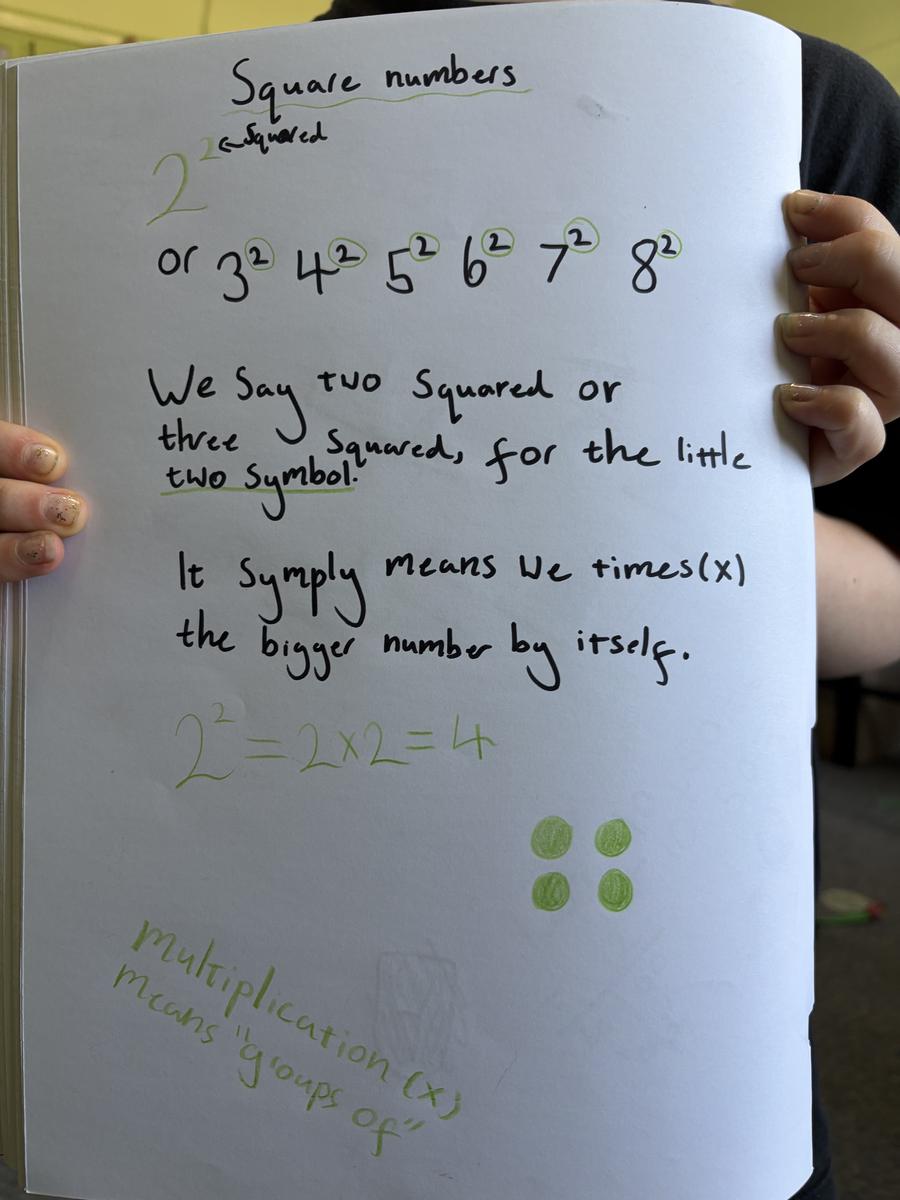 Square numbers
2² ← Squared
or 3² 4² 5² 6² 7² 8²
We Say two Squared or
three Squared, for the little
two Symbol.
It Symply means we times(x)
the bigger number by itself.
2² = 2x2 = 4
multiplication (x)
means "groups of"